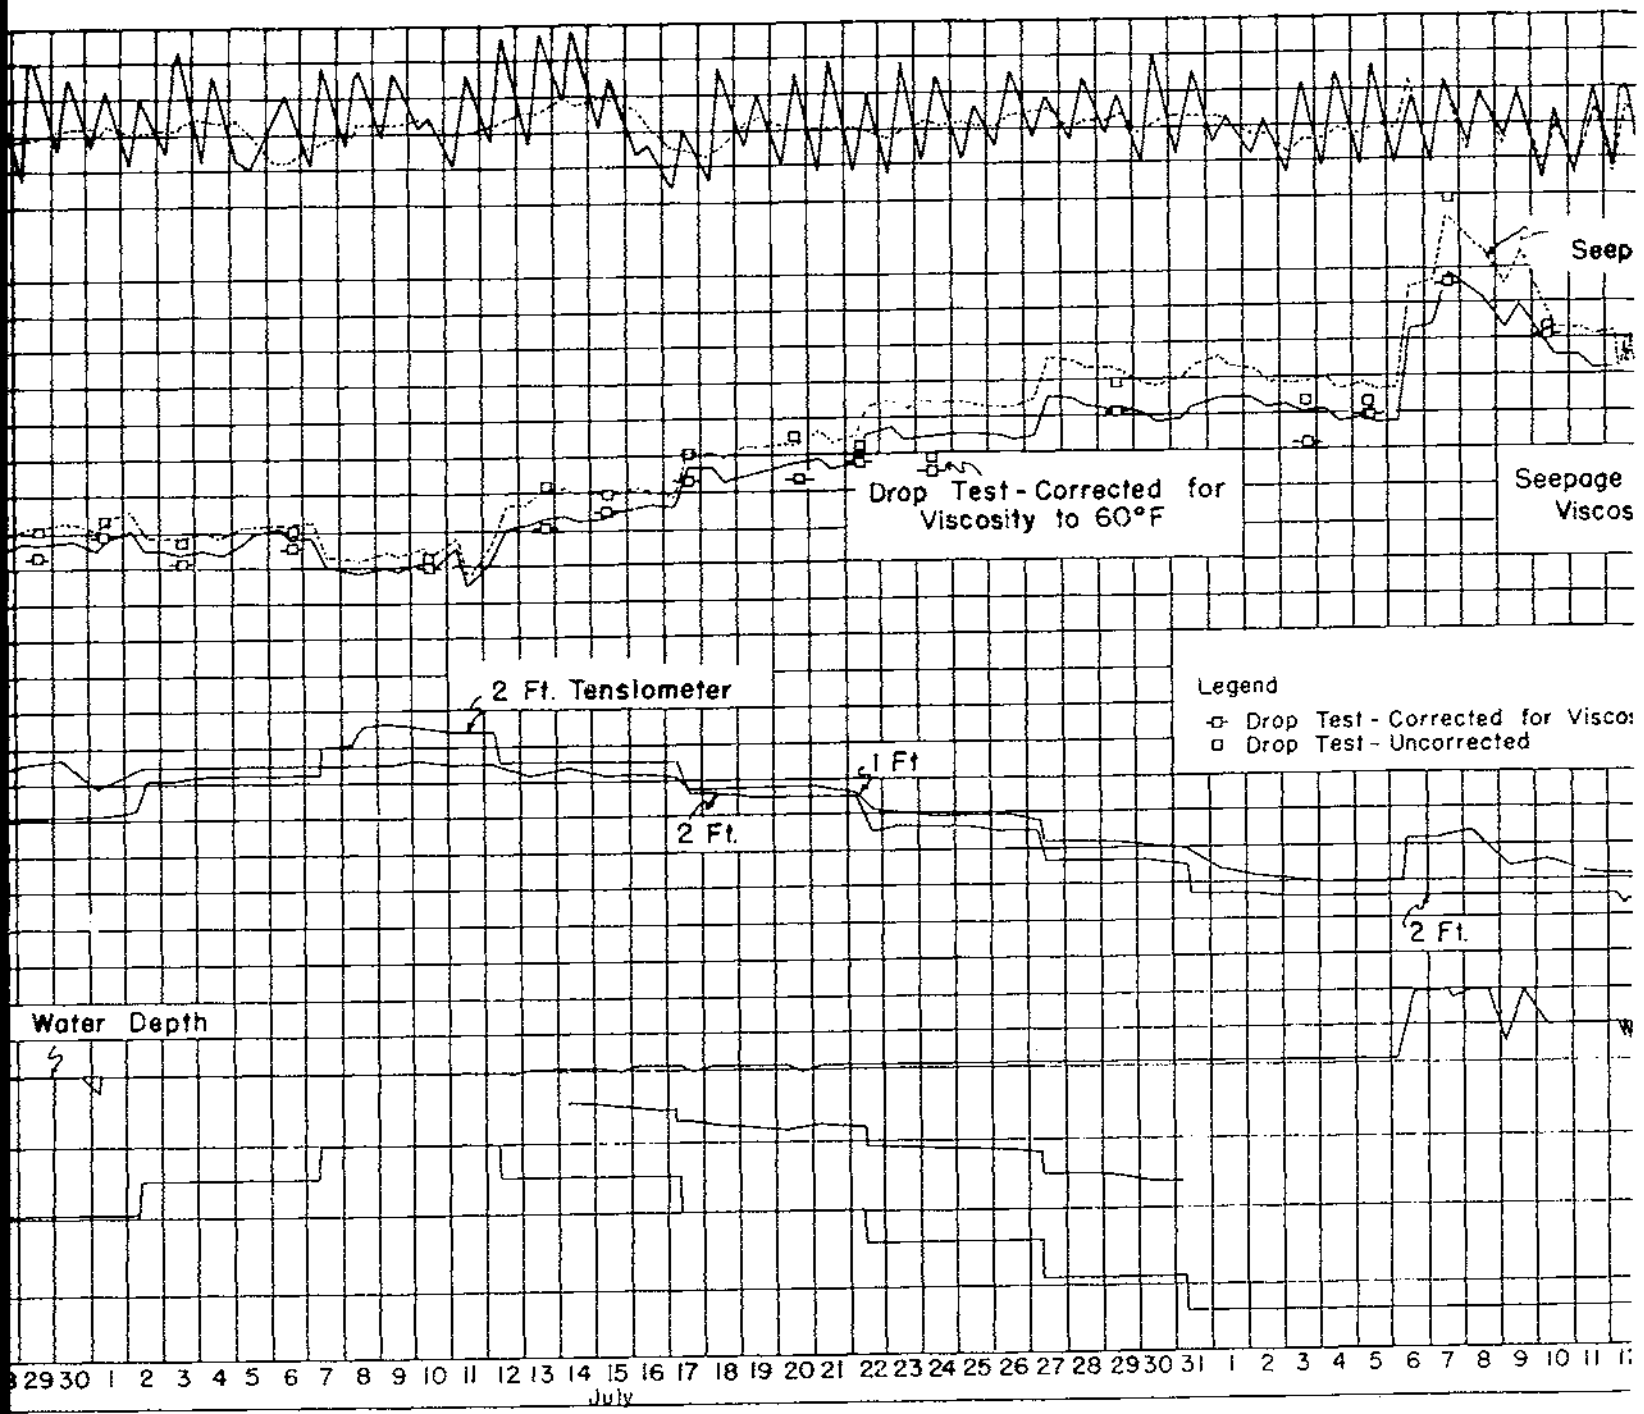 Seep
Drop Test - Corrected for
Viscosity to 60°F
Seepage
Viscos
2 Ft. Tensiometer
Legend
Drop Test - Corrected for Viscos
Drop Test - Uncorrected
1 Ft
2 Ft.
2 Ft.
Water Depth
W
29 30 1 2 3 4 5 6 7 8 9 10 11 12 13 14 15 16 17 18 19 20 21 22 23 24 25 26 27 28 29 30 31 1 2 3 4 5 6 7 8 9 10 11
July